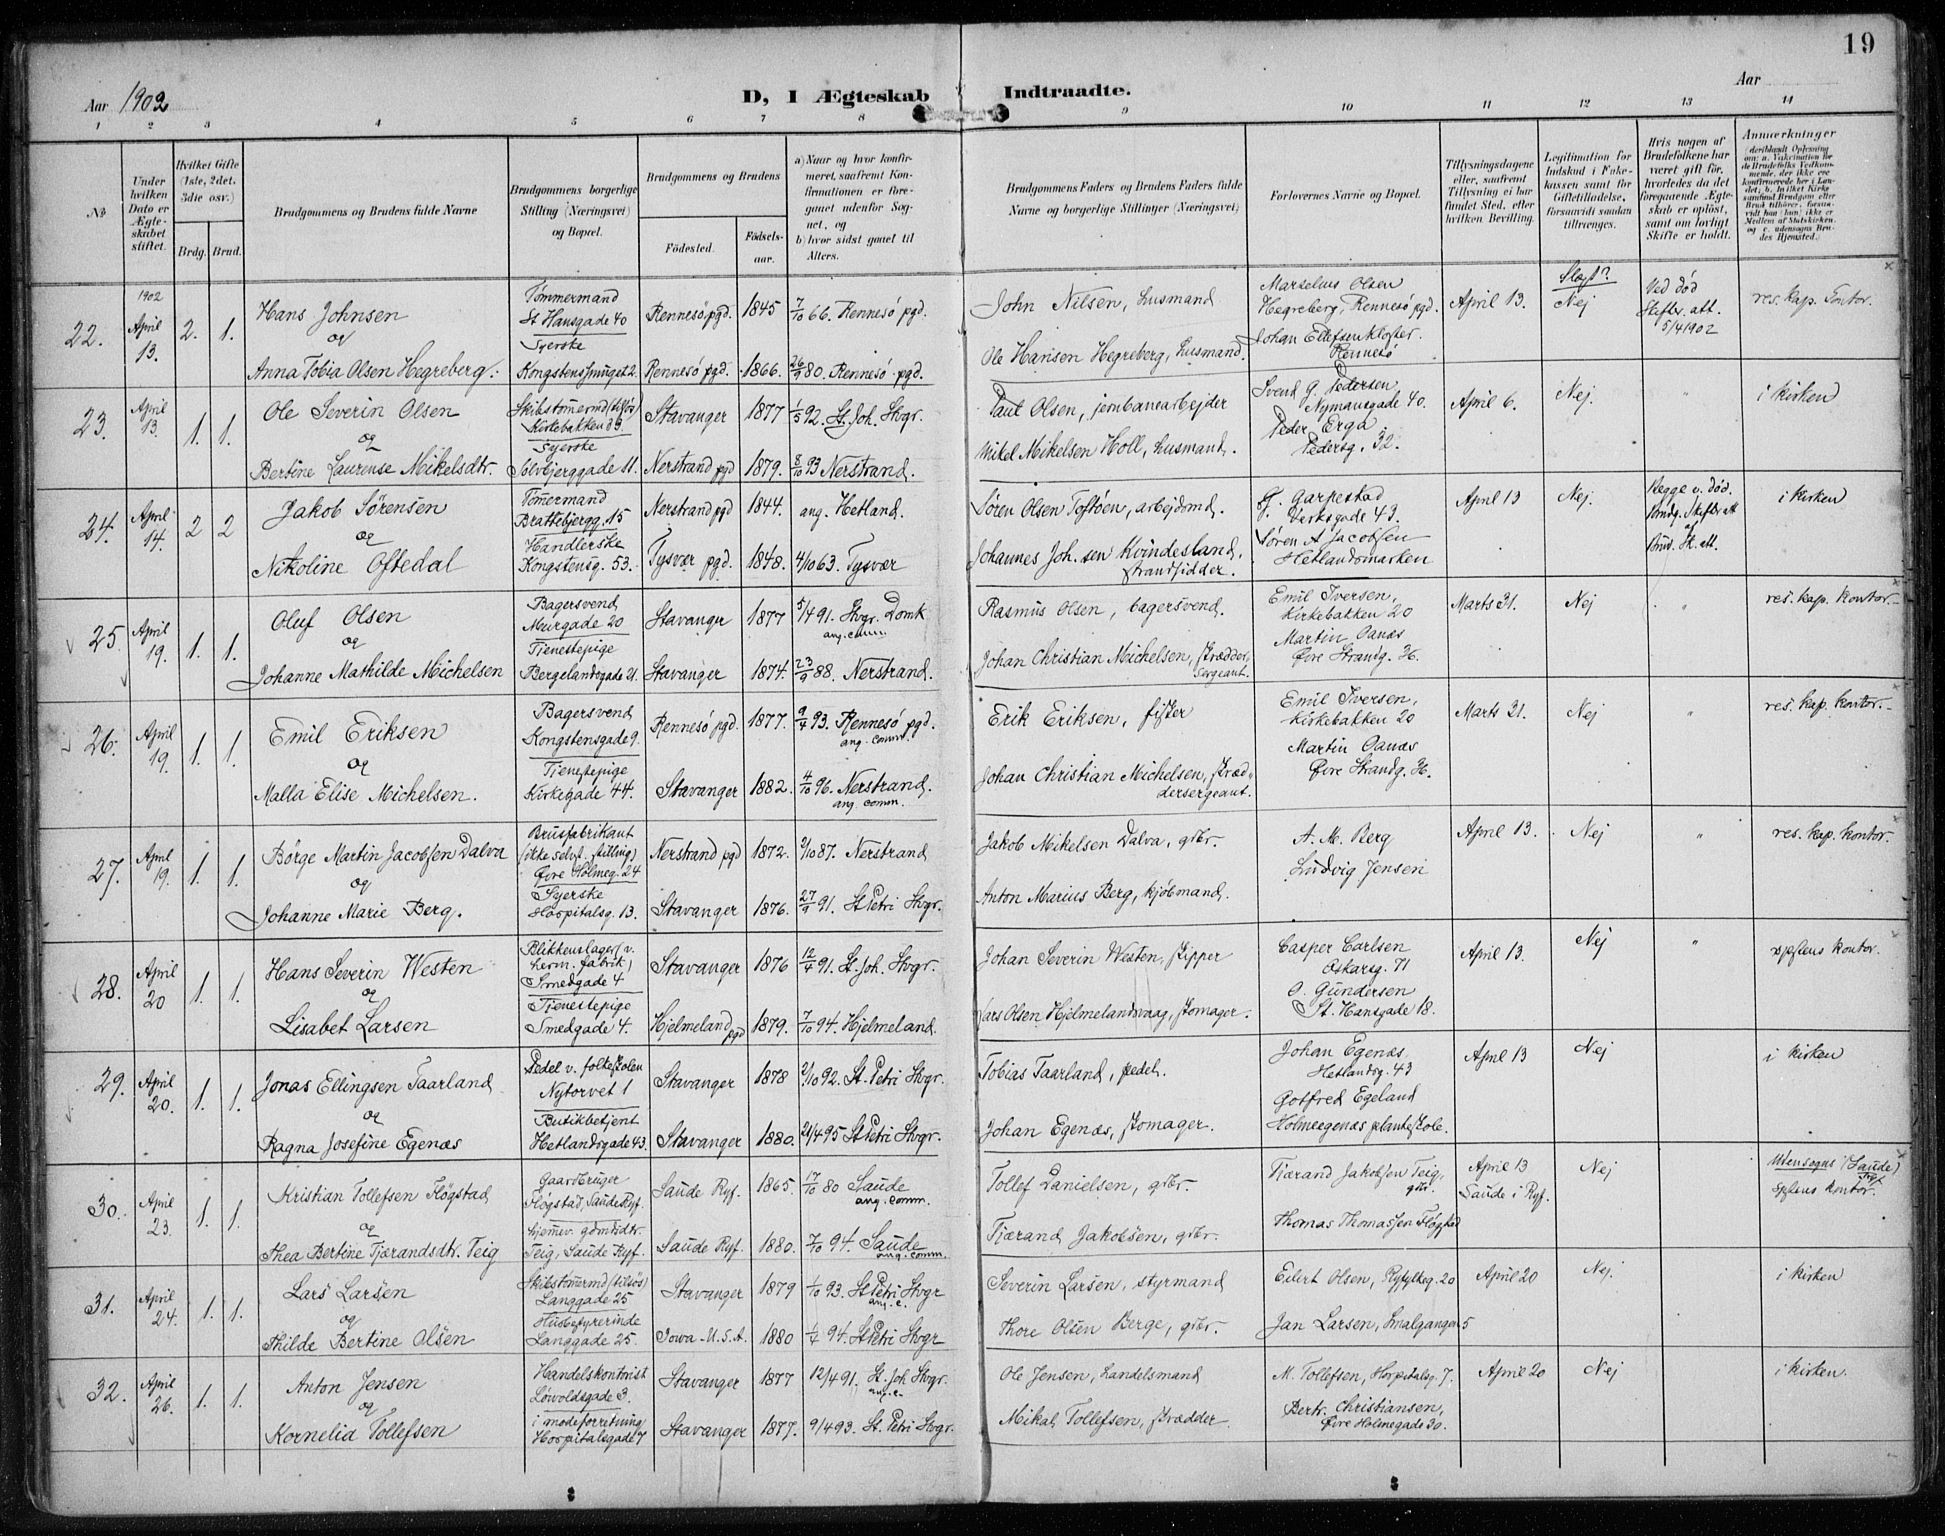 19
Aar 1902
D, I Ægteskab Indtraadte.
Aar
1 2 3 4 5 6 7 8 9 10 11 12 13 14
No
Under hvilken Dato er Ægteskabet stiftet.
Hvilket Gifte (1ste, 2det, 3die osv.)
Brdg. Brud.
Brudgommens og Brudens fulde Navne
Brudgommens borgerlige Stilling (Næringsvei) og Bopæl.
Brudgommens og Brudens
Fødested. Fødselsaar.
a) Naar og hvor konfirmeret, saafremt Konfirmationen er foregaaet udenfor Sognet, og
b) hvor sidst gaaet til Alters.
Brudgommens Faders og Brudens Faders fulde Navne og borgerlige Stillinger (Næringsvei)
Forlovernes Navne og Bopæl.
Tillysningsdagene eller, saafremt Tillysning ei har fundet Sted, efter hvilken Bevilling.
Legitimation for Indskud i Enkekassen samt for Giftetilladelse, forsaavidt saadan tiltrænges.
Hvis nogen af Brudefolkene har været gift før, hvorledes da det foregaaende Ægteskab er opløst, samt om lovligt Skifte er holdt.
Anmærkninger (deriblandt Oplysning om: a. Vakcination for de Brudefolks Vedkommende, der ikke ere konfirmerede her i Landet, b. hvilket Kirkesamfund Brudgom eller Brud tilhører, forsaavidt han (hun) ikke er Medlem af Statskirken, og c. udensogns Brudes Hjemsted.)
22. 1902 April 13. 2. 1.
Hans Johnsen
og
Anna Tobia Olsen Hegreberg.
Tømmermand
St Hansgade 40
Syerske
Kongstensmuget 2.
Rennesø pgd. 1845 7/10 66. Rennesø pgd.
Rennesø pgd. 1866. 26/9 80. Rennesø pgd.
John Nilsen, husmand
Ole Hansen Hegreberg, husmand.
Marselius Olsen
Hegreberg, Rennesø pgd.
Johan Ellefsen Kloster
Rennesø
April 13. Slegt? Nej
Ved død
Skiftes. att.
5/4 1902
res. kap. Kontor.
23. April 13. 1. 1.
Ole Severin Olsen
og
Bertine Laurense Mikelsdtr.
Skibstømrmd (tilsjøs)
Kirkebakken 39
Syerske
Sølvbjerggade 11.
Stavanger 1877 1/5 92. St. Joh. Stvgr.
Nerstrand pgd 1879. 8/10 93 Nerstrand.
Paul Olsen, jernbanearbejder
Mikel Mikelsen Holl, husmand.
Svend G. Pedersen
Nymansgade 40.
Peder Erga
Pedersg. 32.
April 6. Nej. " i kirken
24. April 14. 2 2
Jakob Sørensen
og
Nikoline Oftedal
Tømmermand
Brattebjergg. 15
Handlerske
Kongstensg. 53.
Nerstrand pgd 1844. ang. Hetland.
Tysvær pgd. 1848. 4/10 63. Tysvær
Søren Olsen Toftøen, arbejdsmd.
Johannes Joh.sen Kvindesland, strandsidder.
G. Garpestad
Verksgade 43.
Søren A Jacobsen
Hetlandsmarken
April 13 Nej.
Begge v. død.
Brudg. Skifter. att
Brud. Sk. att.
i kirken
25. April 19. 1. 1.
Oluf Olsen
og
Johanne Mathilde Michelsen
Bagersvend
Murgade 20
Tjenestepige
Bergelandsgade 21.
Stavanger 1877 5/4 91. Stvgr. Domk
ang. comm.
Stavanger 1874. 23/9 88. Nerstrand.
Rasmus Olsen, bagersvend.
Johan Christian Michelsen, skrædder, sergeant.
Emil Iversen,
Kirkebakken 20
Martin Oanæs
Øvre Strandg. 36.
Marts 31. Nej " res. kap. kontor.
26. April 19. 1. 1.
Emil Eriksen
og
Malla Elise Michelsen.
Bagersvend
Kongstensgade 9.
Tjenestepige
Kirkegade 44.
Rennesø pgd. 1877. 9/4 93. Rennesø pgd.
ang. comm.
Stavanger 1882. 4/10 96. Nerstrand.
ang. comm.
Erik Eriksen, fisker
Johan Christian Michelsen, skræddersergeant.
Emil Iversen,
Kirkebakken 20
Martin Oanæs
Øvre Strandg. 36.
Marts 31. Nej " res. kap. kontor.
27. April 19. 1. 1.
Børge Martin Jacobsen Dalva
og
Johanne Marie Berg.
Brusfabrikant
(ikke selvst. stilling)
Øvre Holmeg. 24
Syerske
Hospitalsg. 13.
Nerstrand pgd 1872. 2/10 87. Nerstrand
Stavanger 1876. 27/9 91. St Petri Stvgr.
Jakob Mikelsen Dalva, gbr.
Anton Marius Berg, kjøbmand.
A. M. Berg
Ludvig Jensen
April 13. Nej " res. kap. kontor.
28. April 20 1. 1.
Hans Severin Westen
og
Lisabet Larsen
Blikkenslager (v.
herm. fabrik)
Smedgade 4
Tjenestepige
Smedgade 4.
Stavanger 1876 12/4 91. St. Joh. Stvgr.
Hjelmeland pgd 1879. 7/10 94. Hjelmeland.
Johan Severin Westen, skipper
Lars Olsen Hjelmelandsvaag, skomager.
Casper Carlsen
Oskarsg. 71
O. Gundersen
St. Hansgade 18.
April 13. Nej " spstens kontor.
29. April 20. 1. 1.
Jonas Ellingsen Taarland
og
Ragna Josefine Egenæs
Pedel v. folkeskolen
Nytorvet 1
Butikbetjent
Hetlandsgade 43.
Stavanger 1878 2/10 92. St. Petri Stvgr.
Stavanger 1880. 21/4 95 St Petri Stvgr.
Tobias Taarland, pedel.
Johan Egenæs, skomager.
Johan Egenæs
Hetlandsg. 43
Gotfred Egeland
Holmeegenæs planteskole.
April 13 Nej i kirken
30. April 23. 1. 1.
Kristian Tollefsen Fløgstad
og
Thea Bertine Tjærandsdtr. Teig
Gaardbruger
Fløgstad, Saude Ryf.
hjemmev. gdmdsdtr.
Teig, Saude Ryf.
Saude Ryf. 1865. 17/10 80 Saude
ang. comm.
Saude Ryf. 1880. 7/10 94. Saude
ang. comm.
Tollef Danielsen, gbr.
Tjærand Jakobsen, gbr.
Tjærand Jakobsen Teig, gbr.
Thomas Thomassen Fløgstad
April 13
Saude i Ryf.
Nej
Utensogns (Saude)
Ryf.
spstens kontor.
31. April 24. 1. 1.
Lars Larsen
og
Thilde Bertine Olsen
Skibstømrmd (tilsøs)
Langgade 25
Husbestyrerinde
Langgade 25.
Stavanger 1879 1/10 93. St Petri Stvgr
ang. c.
Iowa U.S.A. 1880 1/4 94. St Petri Stvgr
Severin Larsen, styrmand
Thore Olsen Berge, gbr.
Eilert Olsen, Ryfylkeg. 20
Jan Larsen, Smalgangen 5
April 20 Nej. i kirken
32. April 26. 1. 1.
Anton Jensen
og
Kornelia Tollefsen
Handelskontorist
Løvoldsgade 3.
i modeforretning
Hospitalsgade 7
Stavanger 1877 12/4 91. St. Joh Stvgr.
ang. c.
Stavanger 1877. 9/4 93. St. Petri Stvgr.
Ole Jensen, handelsmand
Mikal Tollefsen, skrædder
M. Tollefsen, Hospitalsg. 7.
Bertr. Christiansen,
Øvre Holmegade 30.
April 20 Nej i kirken.